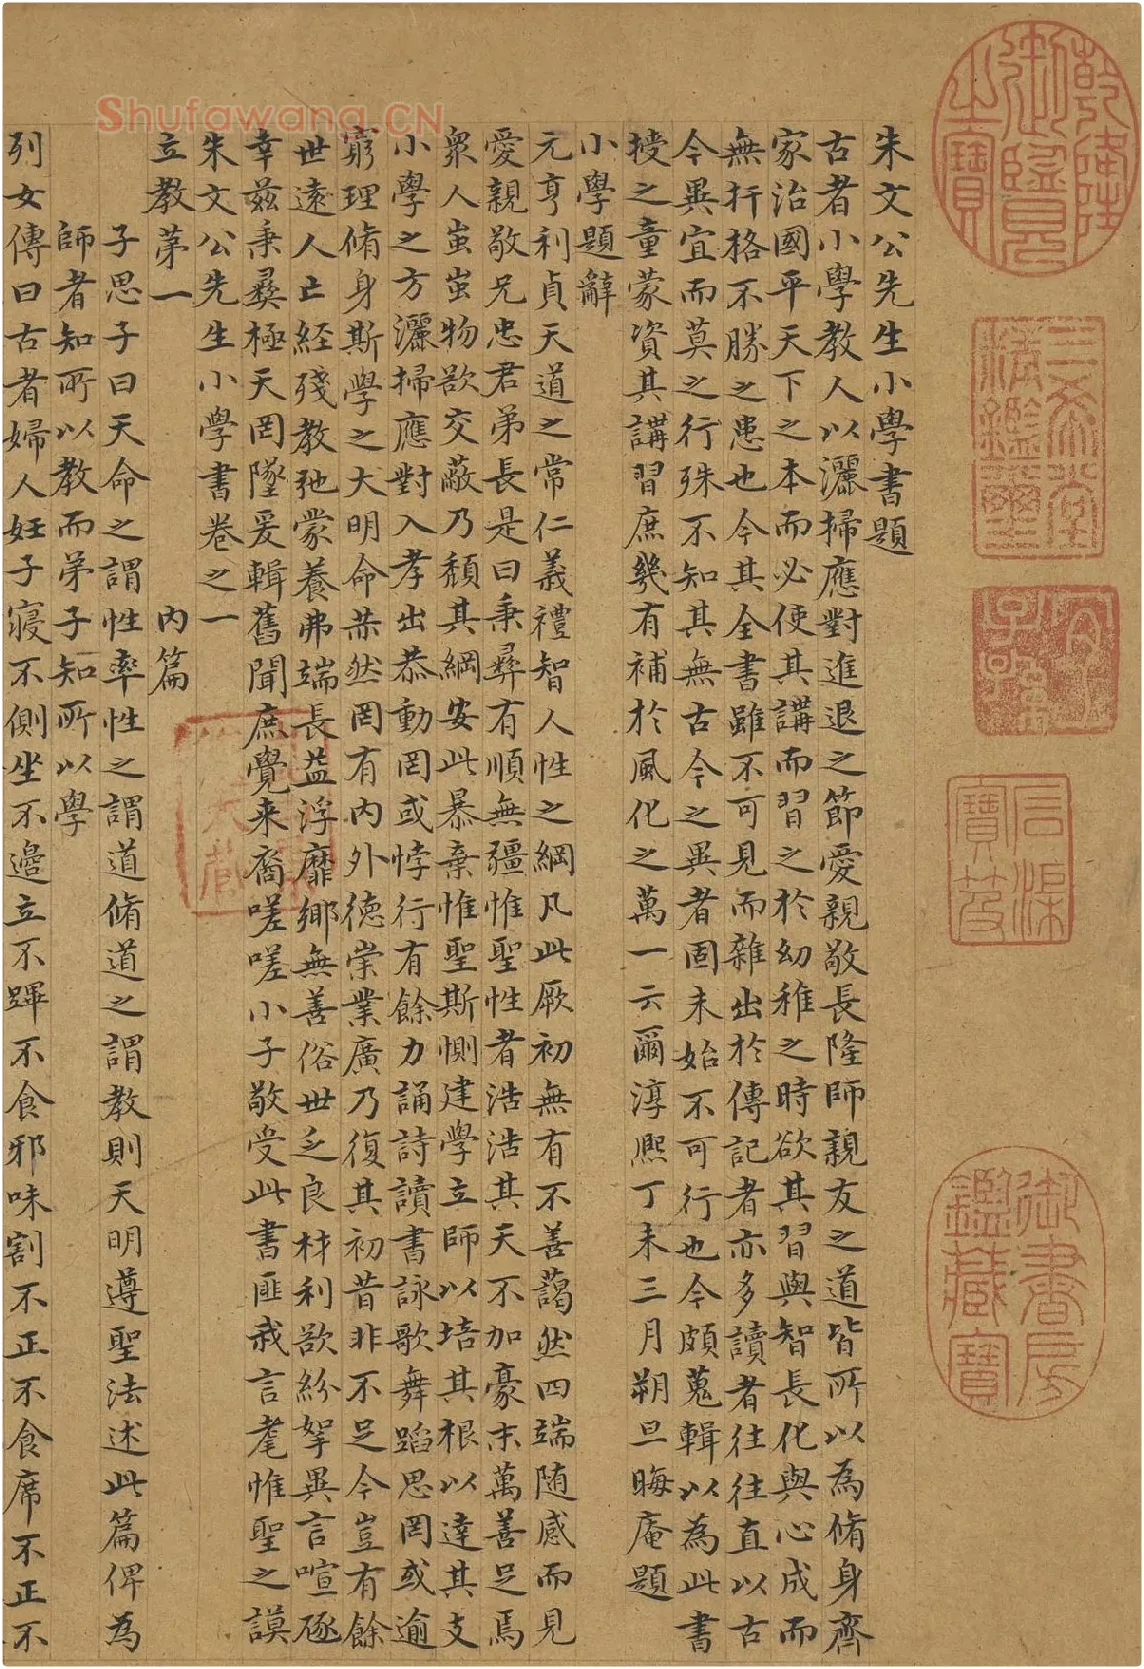 Shufawang.CN
乾隆御覽之寶
三希堂精鑑璽
宜子孫
石渠寶笈
御書房鑑藏寶
朱文公先生小學書題
古者小學教人以灑掃應對進退之節愛親敬長隆師親友之道皆所以為脩身齊
家治國平天下之本而必使其講而習之於幼稚之時欲其習與智長化與心成而
無扞格不勝之患也今其全書雖不可見而雜出於傳記者亦多讀者往往直以古
今異宜而莫之行殊不知其無古今之異者固未始不可行也今頗蒐輯以為此書
授之童蒙資其講習庶幾有補於風化之萬一云爾淳熙丁未三月朔旦晦庵題
小學題辭
元亨利貞天道之常仁義禮智人性之綱凡此厥初無有不善藹然四端随感而見
愛親敬兄忠君弟長是曰秉彝有順無疆惟聖性者浩浩其天不加豪末萬善足焉
衆人蚩蚩物欲交蔽乃頹其綱安此暴棄惟聖斯惻建學立師以培其根以達其支
小學之方灑掃應對入孝出恭動罔或悖行有餘力誦詩讀書詠歌舞蹈思罔或逾
窮理脩身斯學之大明命赫然罔有內外德崇業廣乃復其初昔非不足今豈有餘
世遠人亡經殘教弛蒙養弗端長益浮靡鄉無善俗世乏良材利欲紛挐異言喧豗
幸茲秉彝極天罔墜爰輯舊聞庶覺来裔嗟嗟小子敬受此書匪我言耄惟聖之謨
朱文公先生小學書卷之一
立教苐一 内篇
子思子曰天命之謂性率性之謂道脩道之謂教則天明遵聖法述此篇俾為
師者知所以教而弟子知所以學
列女傳曰古者婦人妊子寢不側坐不邉立不蹕不食邪味割不正不食席不正不